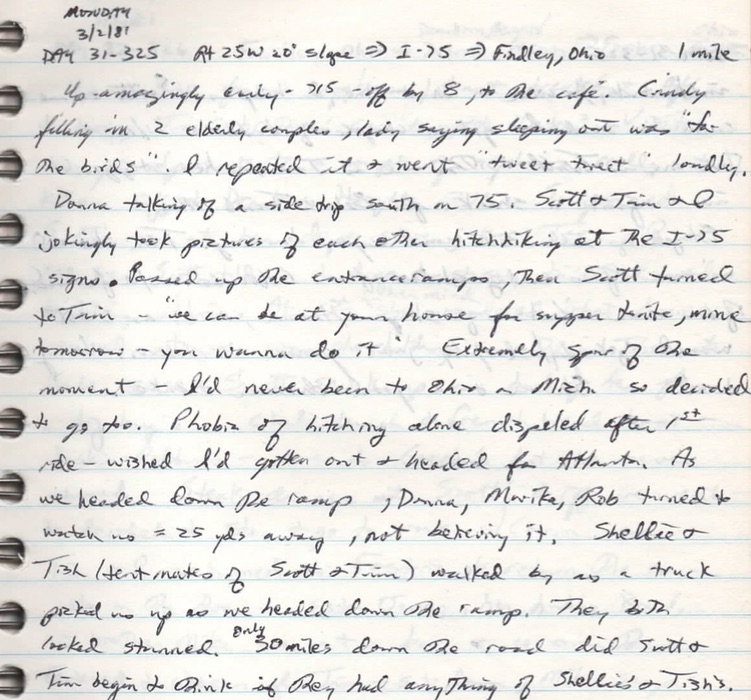 MONDAY
3/2/81
DAY 31-325 Rt 25W 20° slope ⇒ I-75 ⇒ Findley, Ohio 1 mile
Up amazingly early - 715 - off by 8, to the cafe. Cindy
filling in 2 elderly couples, lady saying sleeping out was "for
the birds". I repeated it & went "tweet tweet" loudly.
Donna talking of a side trip south on 75. Scott & Tim & I
jokingly took pictures of each other hitchhiking at the I-75
signs. Passed up the entrance ramps, then Scott turned
to Tim - "we can be at your house for supper tonite, mine
tomorrow - you wanna do it" Extremely spur of the
moment - I'd never been to Ohio or Mich so decided
to go too. Phobia of hitching alone dispeled after 1st
ride - wished I'd gotten out & headed for Atlanta. As
we headed down the ramp, Donna, Marika, Rob turned to
watch us ≈ 25 yds away, not believing it. Shellie &
Tish (tent mates of Scott & Tim) walked by as a truck
picked us up as we headed down the ramp. They both
looked stunned. Only 30 miles down the road did Scott &
Tim begin to think if they had anything of Shellie's & Tish's.